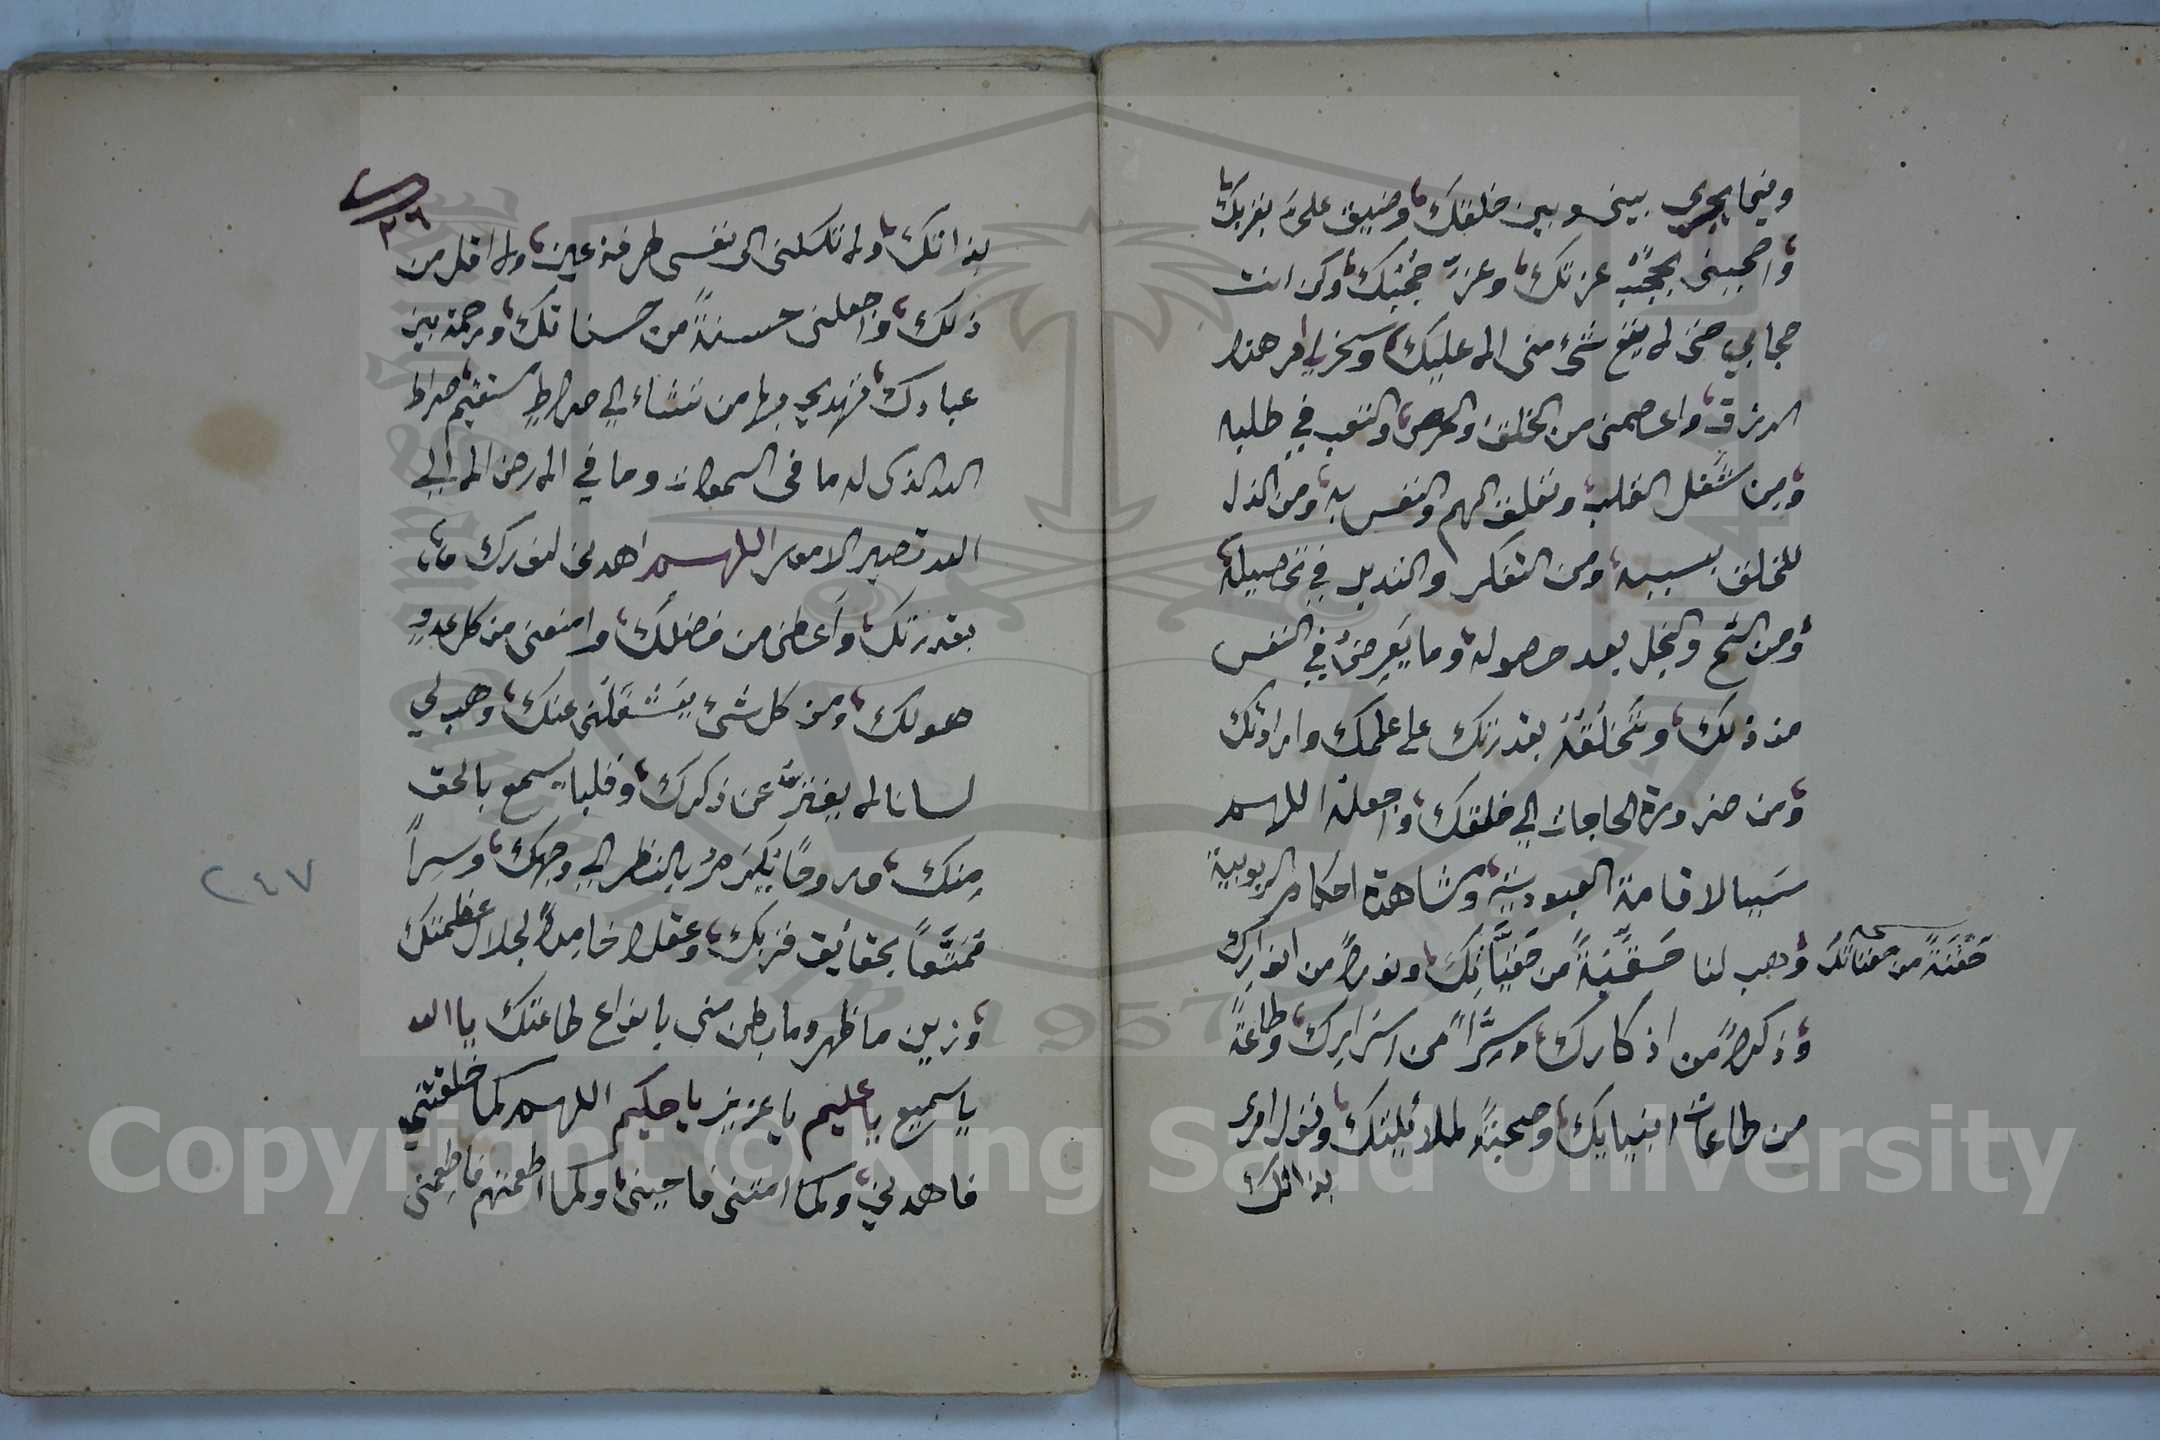 وفيما يجري بيني وبين خلقك وضيق علىّ بقربك
واحجبني بحجب عزتك وعزّ حجبك وكن انت
حجابي حتى لا يقع شئ مني الا عليك وسخر لي امر هذا
الرزق واعصمني من الخلق والحرص والتعب في طلبه
ومن شغل القلب وتعلق الهم والنفس به ومن الذل
للخلق بسببه ومن التفكر والتدبير في تحصيله
ومن الشح والبخل بعد حصوله وما يعرض في النفس
من ذلك وتخلقه بقدرتك على علمك وارادتك
ومن ضرورة الحاجات الي خلقك واجعله اللهم
سببا لاقامة العبودية ومشاهدة احكام الربوبية
وهب لنا حقيّنةً من حقيّاتك ونوراً من انوارك
حفنةً من حفناتك
وذكراً من اذكارك وسرًّا من اسرارك وطاعةً
من طاعات انبيايك وصحبةً لملائيكتك وتول امري
بذاتك
٢٦
بذاتك ولا تكلني الى نفسي طرفة عين ولا اقل من
ذلك واجعلني حسنةً من حسناتك ورحمة بين
عبادك تهدي بها من تشاء الي صراطٍ مستقيم صراط
الله الذى له ما في السموات وما في الارض الا الي
الله تصير الامور اللهم اهدني لنورك
بقدرتك واعطني من فضلك وامنعني من كل عدوٍ
هو لك ومن كل شئ يشغلني عنك وهب لي
لسانا لا يفترّ عن ذكرك وقلبا يسمع بالحق
منك وروحًا يكرم بالنظر الي وجهك وسراً
ممتّعاً بحقايق قربك وعقلا خامداً لجلال عظمتك
وزين ما ظهر وما بطن مني بانواع طاعتك يا الله
يا سميع يا عليم يا عزيز يا حكيم اللهم كما خلقتني
فاهدني وكما امتني فاحيني وكما اطعمتهم فاطعمني
٢٤٧
Copyright © King Saud University
1957